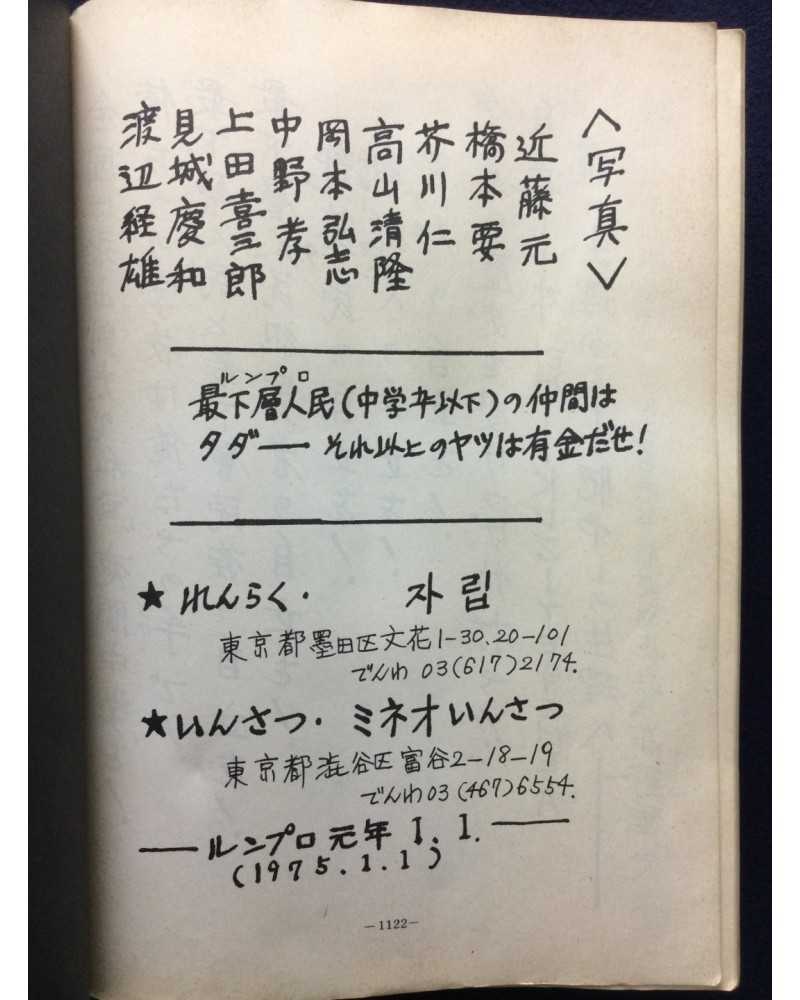 〈写真〉
近藤元
橋本要
芥川仁
高山清隆
岡本弘志
中野孝
上田喜三郎
見城慶和
渡辺経雄
ルンプロ
最下層人民(中学卆以下)の仲間は
タダー それ以上のヤツは有金だせ!
★れんらく・ 자립
東京都墨田区文花1-30.20-101
でんわ 03(617)2174.
★いんさつ・ミネオいんさつ
東京都渋谷区富谷2-18-19
でんわ03(467)6554.
―ルンプロ元年1.1.―
(1975.1.1)
-1122-